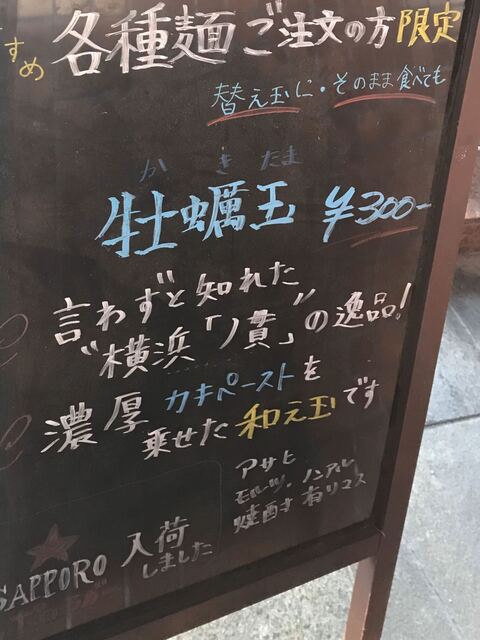 すめ 各種麺ご注文の方限定
替え玉に・そのまま食べても
かきたま
牡蠣玉 ¥300-
言わずと知れた
"横浜「ノ貫」"の逸品!
濃厚カキペーストを
乗せた和え玉です
アサヒ
モルツ、ノンアル
焼酎才有リマス
SAPPORO 入荷
しました